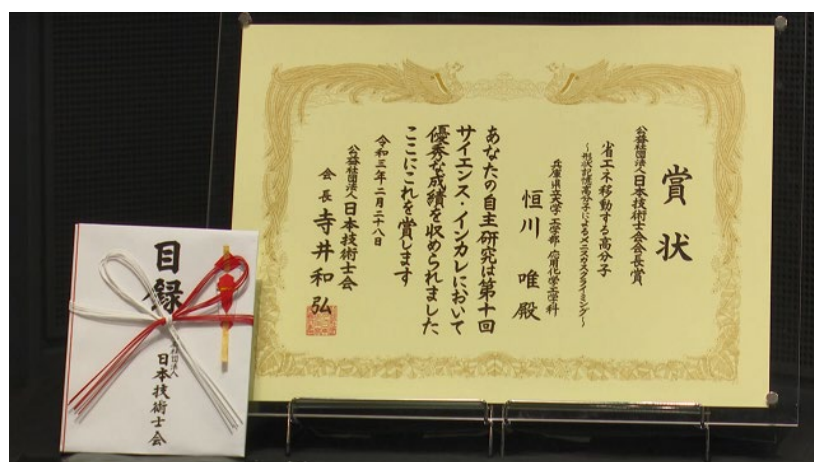 賞状
公益社団法人日本技術士会会長賞
省エネ移動する高分子
～形状記憶高分子によるメニスカスクライミング～
兵庫県立大学 工学部 応用化学工学科
恒川 唯 殿
あなたの自主研究は第十回
サイエンス・インカレにおいて
優秀な成績を収められました
ここにこれを賞します
令和三年二月二十八日
公益社団法人日本技術士会
会長 寺井和弘
目録
社団法人
日本技術士会